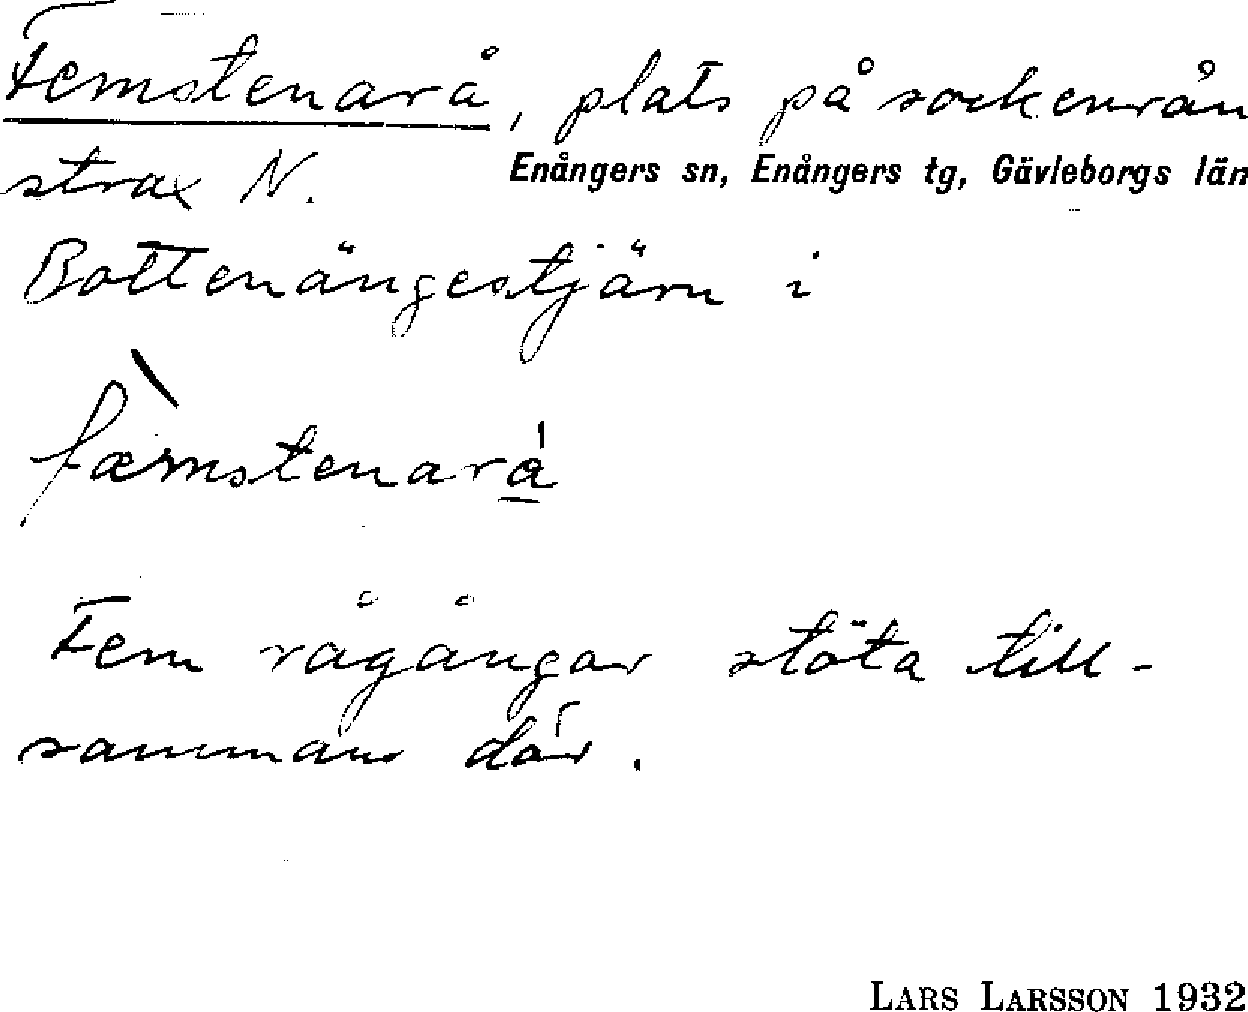 Femstenarå, plats på sockenrån
strax N.
Enångers sn, Enångers tg, Gävleborgs län
Bottenängestjärn i
fæmstenarå
Fem rågångar stöta till-
sammans där.
LARS LARSSON 1932